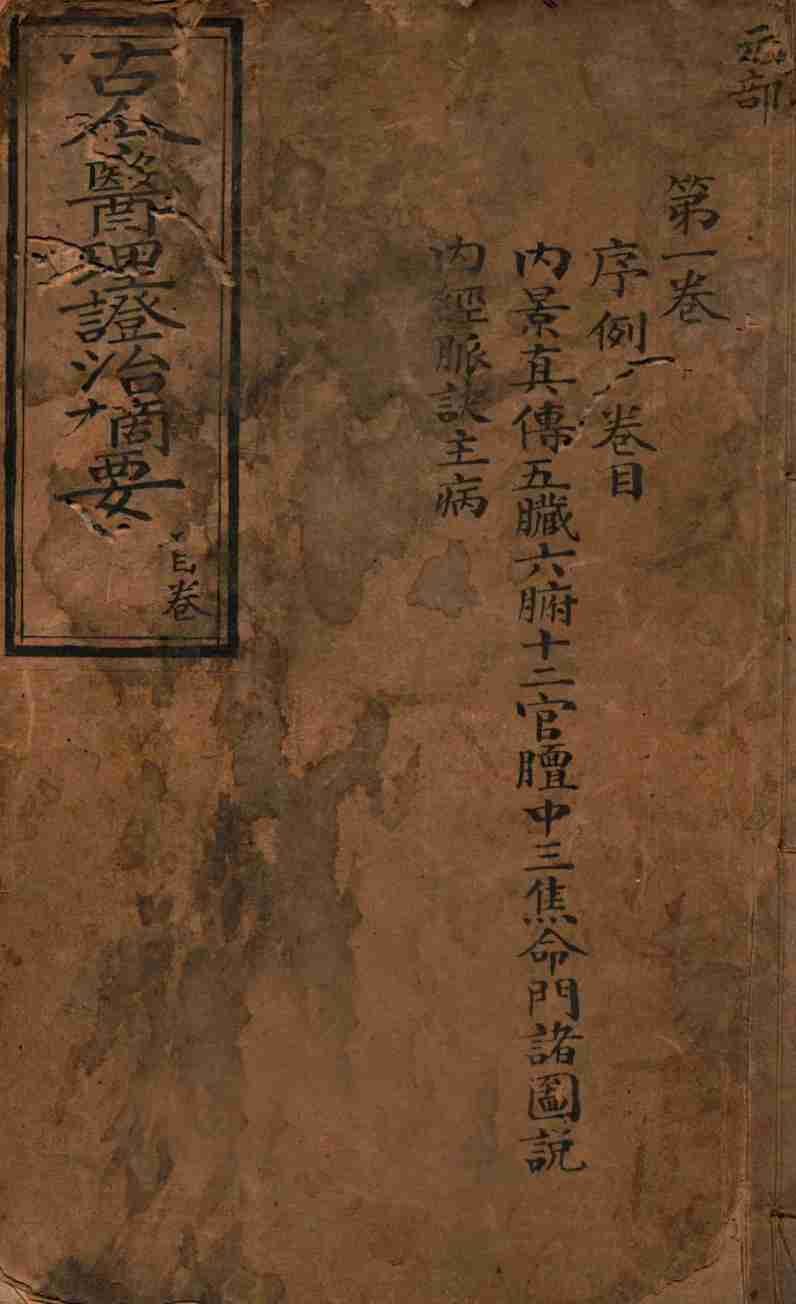 部
第一卷
序例 卷目
內景真傳五臟六腑十二官膻中三焦命門諸圖説
內經脈訣主病
古今醫理證治摘要
卷